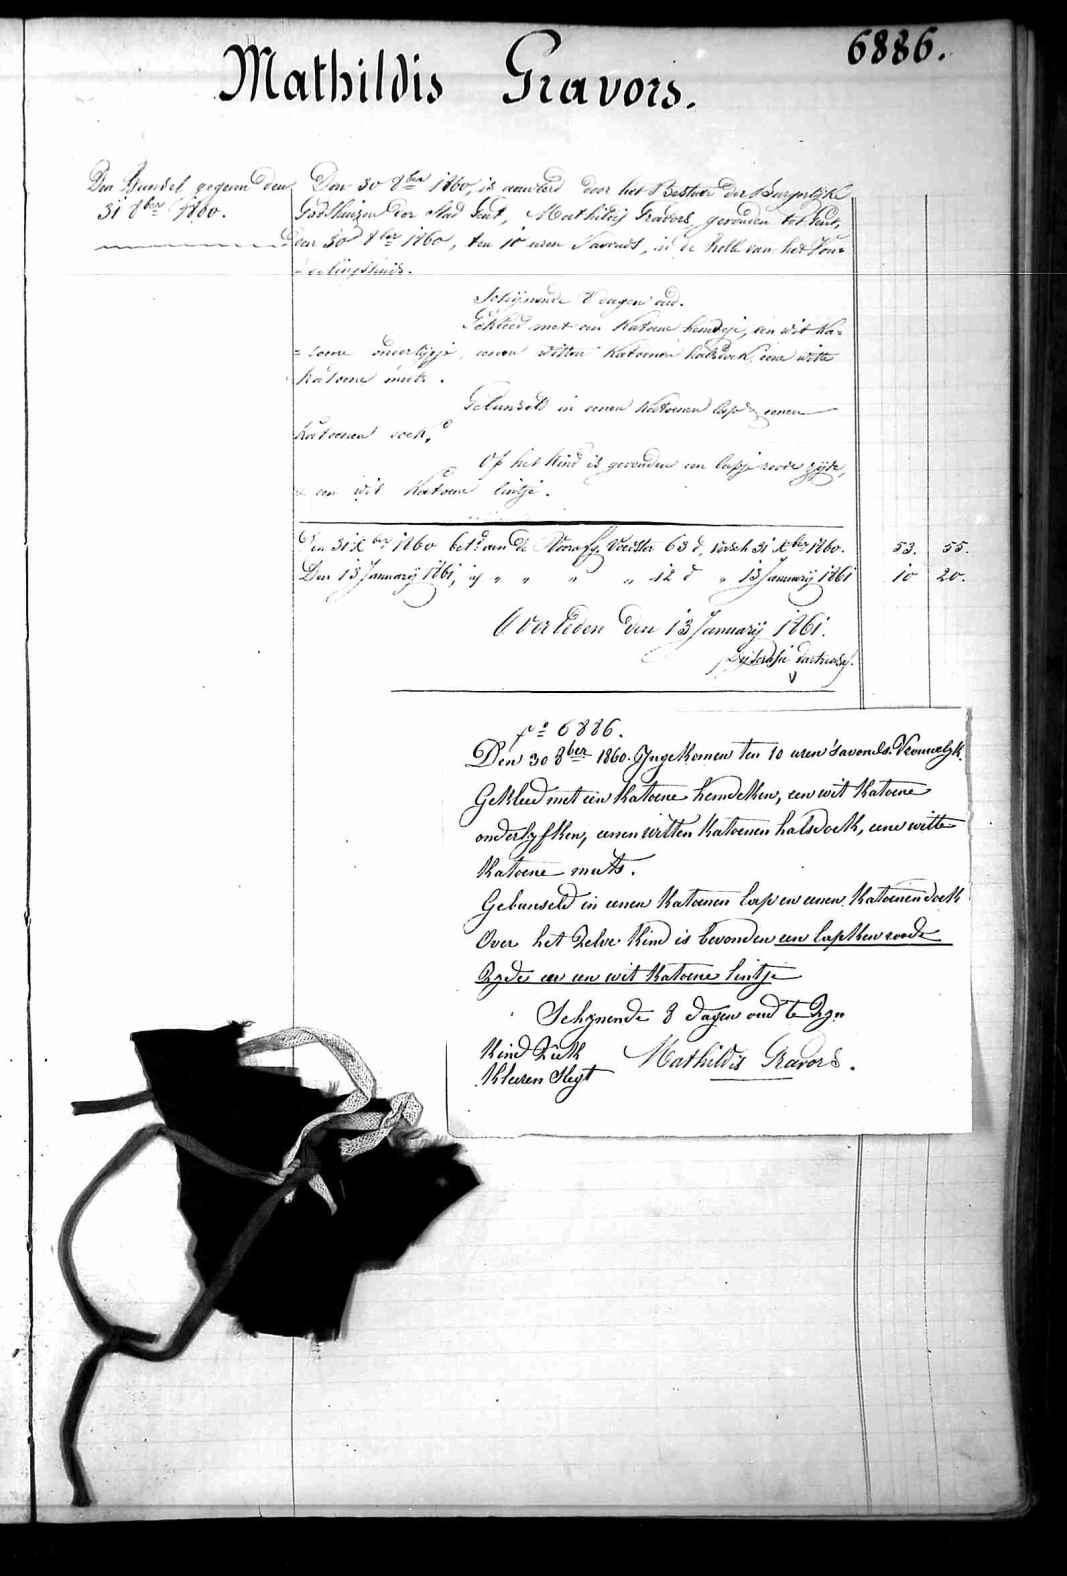 6886.
Mathildis Gravors.
Den Bunsel gegeven den
31 8ber 1860.
Den 30 8ber 1860, is aenveerd door het Bestuur der Burgerlijke
Godshuizen der Stad Gent, Mathildis Gravors, gevonden tot Gent,
den 30 8ber 1860, ten 10 uren 's avonds, in de Rolle van het Von=
=delingshuis.
Schijnende 8 dagen oud.
Gekleed met een Katoene hemdeje, een wit Ka=
=toene onderlijfje, eenen witten Katoenen halsdoek, eene witte
Katoene muts.
Gebunseld in eenen Katoenen lap & eenen
Katoenen doek.
Op het Kind is gevonden een lapje roode zijde,
& een wit Katoene lintje.
Den 31 Xber 1860 betd aan de Voorsz. Voedster 63 d, versch 31 Xber 1860. 53. 55.
Den 13 January 1861, id " " " " 12 d " 13 January 1861 10 20.
Overleden den 13 January 1861.
fo 6886.
Den 30 8ber 1860. Ingekomen ten 10 uren 's avonds. Vrouwelyk.
Gekleed met een Katoene hemdeken, een wit Katoene
onderlyfken, eenen witten Katoenen halsdoek, eene witte
Katoene muts.
Gebunseld in eenen Katoenen lap en eenen Katoenen doek
Over het Zelve Kind is bevonden een lapken roode
Zyde en een wit Katoene lintje
Schynende 8 dagen oud te Zyn
Kind Ziek Mathildis Gravors.
Kleeren Slegt